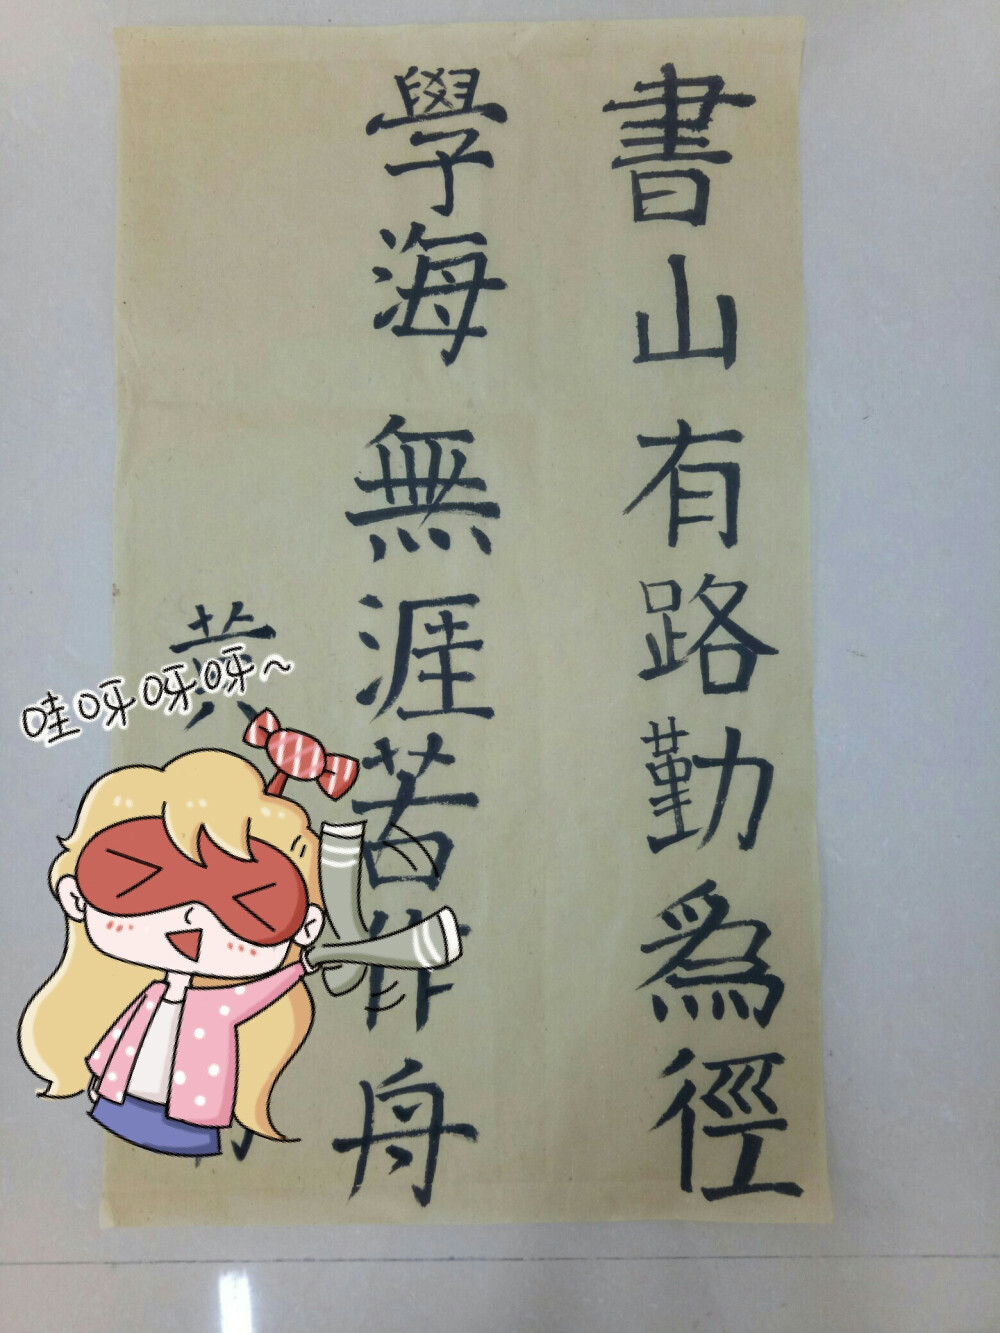 書山有路勤爲徑
學海無涯苦作舟
黄
哇呀呀呀~